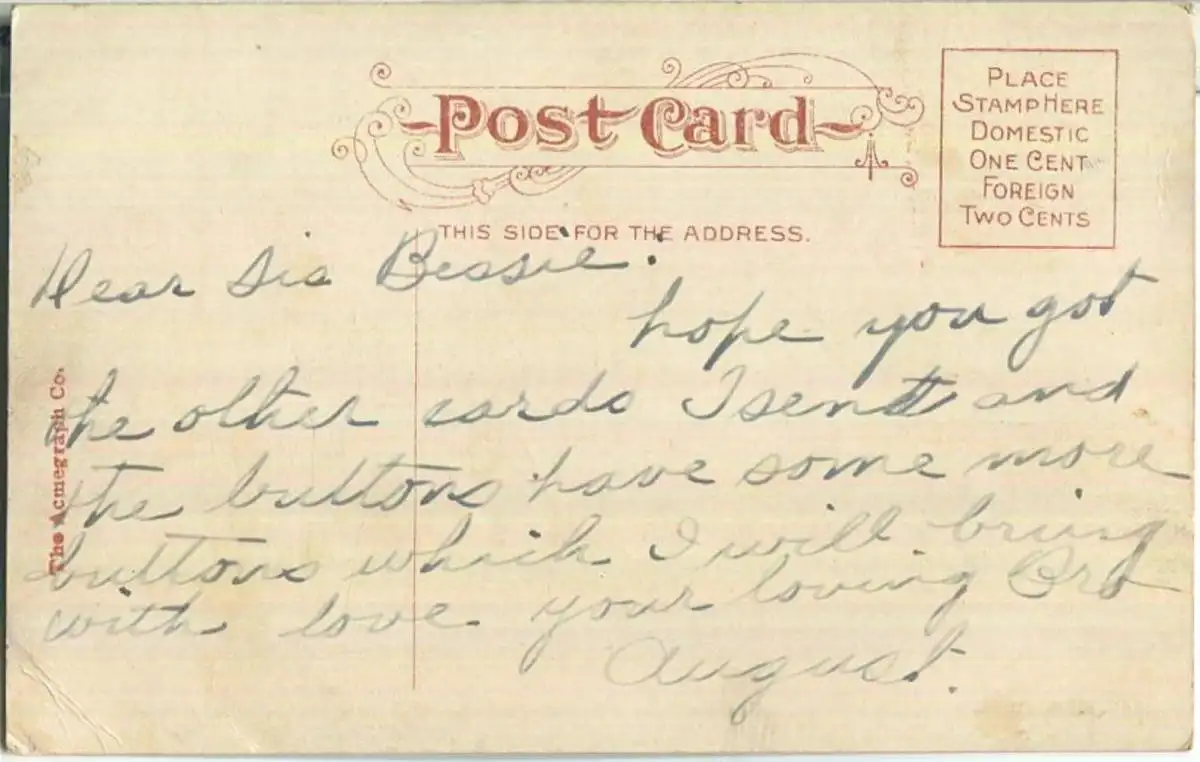 Post Card
PLACE
STAMP HERE
DOMESTIC
ONE CENT
FOREIGN
TWO CENTS
THIS SIDE FOR THE ADDRESS.
Dear Sis Bessie.
hope you got
the other cards I sent and
the buttons have some more
buttons which I will bring
with love your loving Bro
August.
The Acmegraph Co.